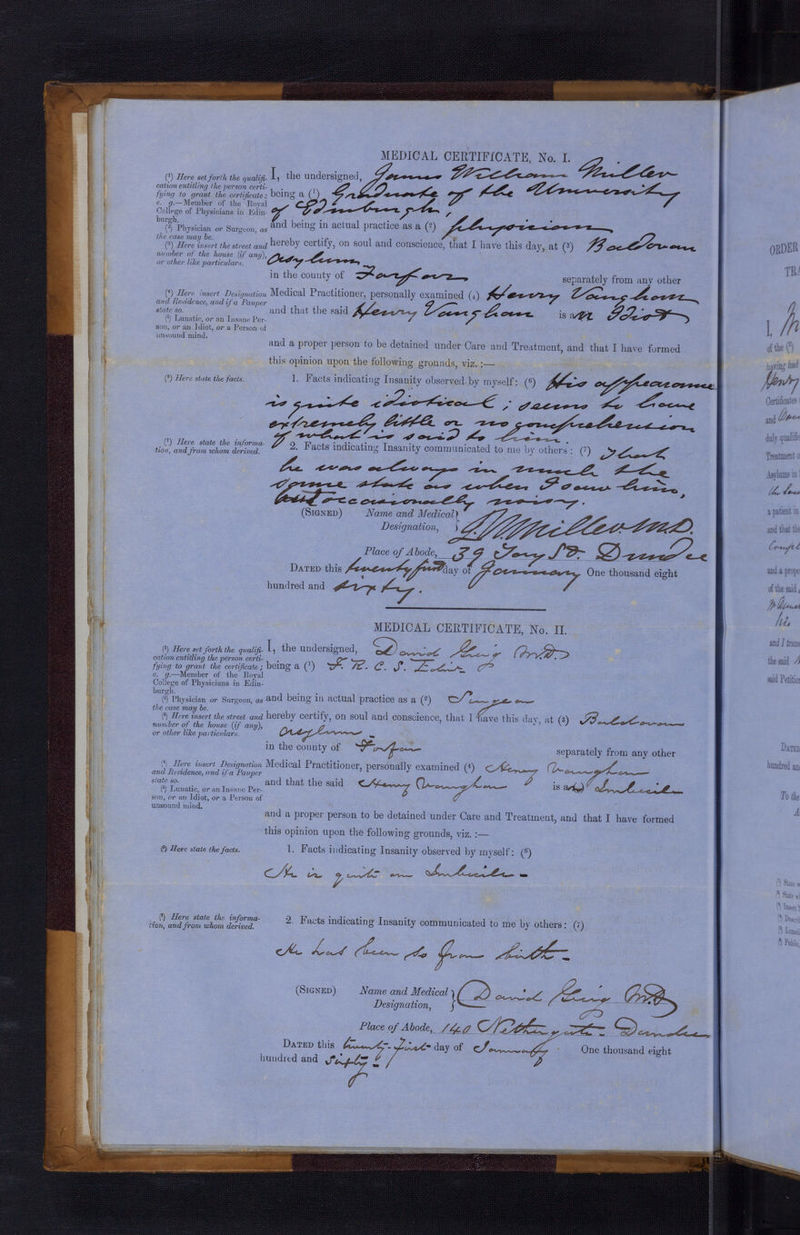 MEDICAL CERTIFICATE, No. I.
(¹) Here set forth the qualifi-
cation entitling the person certi-
fying to grant the certificate;
e. g.—Member of the Royal
College of Physicians in Edin-
burgh.
(²) Physician or Surgeon, as
the case may be.
(³) Here insert the street and
number of the house (if any),
or other like particulars.
(⁴) Here insert Designation
and Residence, and if a Pauper
state so.
(⁵) Lunatic, or an Insane Per-
son, or an Idiot, or a Person of
unsound mind.
(⁶) Here state the facts.
(⁷) Here state the informa-
tion, and from whom derived.
I, the undersigned, James William Miller
being a (¹) Graduate of the University
of Edinburgh,
and being in actual practice as a (²) physician
hereby certify, on soul and conscience, that I have this day, at (³) Baldovan
Asylum
in the county of Forfar separately from any other
Medical Practitioner, personally examined (⁴) Henry Vaughan
and that the said Henry Vaughan is an Idiot
and a proper person to be detained under Care and Treatment, and that I have formed
this opinion upon the following grounds, viz.:—
1. Facts indicating Insanity observed by myself: (⁶) His appearance
is quite idiotical; seems to have
extremely little or no comprehension
of what is said to him.
2. Facts indicating Insanity communicated to me by others: (⁷) That
he was always in much the
same state as when I saw him,
occasionally noisy.
(SIGNED) Name and Medical
Designation, J.W. Miller M.D.
Place of Abode, 39 Tay St. Dundee
DATED this twenty first day of January One thousand eight
hundred and sixty.
MEDICAL CERTIFICATE, No. II.
(¹) Here set forth the qualifi-
cation entitling the person certi-
fying to grant the certificate;
e. g.—Member of the Royal
College of Physicians in Edin-
burgh.
(²) Physician or Surgeon, as
the case may be.
(³) Here insert the street and
number of the house (if any),
or other like particulars.
(⁴) Here insert Designation
and Residence, and if a Pauper
state so.
(⁵) Lunatic, or an Insane Per-
son, or an Idiot, or a Person of
unsound mind.
(⁶) Here state the facts.
(⁷) Here state the informa-
tion, and from whom derived.
I, the undersigned, David Greig M.D.
being a (¹) F. R. C. S. Edin
and being in actual practice as a (²) Surgeon
hereby certify, on soul and conscience, that I have this day, at (³) Baldovan
Asylum
in the county of Forfar separately from any other
Medical Practitioner, personally examined (⁴) Henry Vaughan
and that the said Henry Vaughan is an Imbecile
and a proper person to be detained under Care and Treatment, and that I have formed
this opinion upon the following grounds, viz.:—
1. Facts indicating Insanity observed by myself: (⁶)
He is quite an Imbecile -
2. Facts indicating Insanity communicated to me by others: (⁷)
He has been so from birth -
(SIGNED) Name and Medical
Designation, David Greig M.D
Place of Abode, 140 Nethergate - Dundee
DATED this twenty-first day of January One thousand eight
hundred and Sixty
ORDER
I,
of the (⁵)
Henry
Certificates
and
duly qualifi
Treatment
a patient in
and that
and a prope
of the said
the said
said Petitio
DATED
hundred an
To the